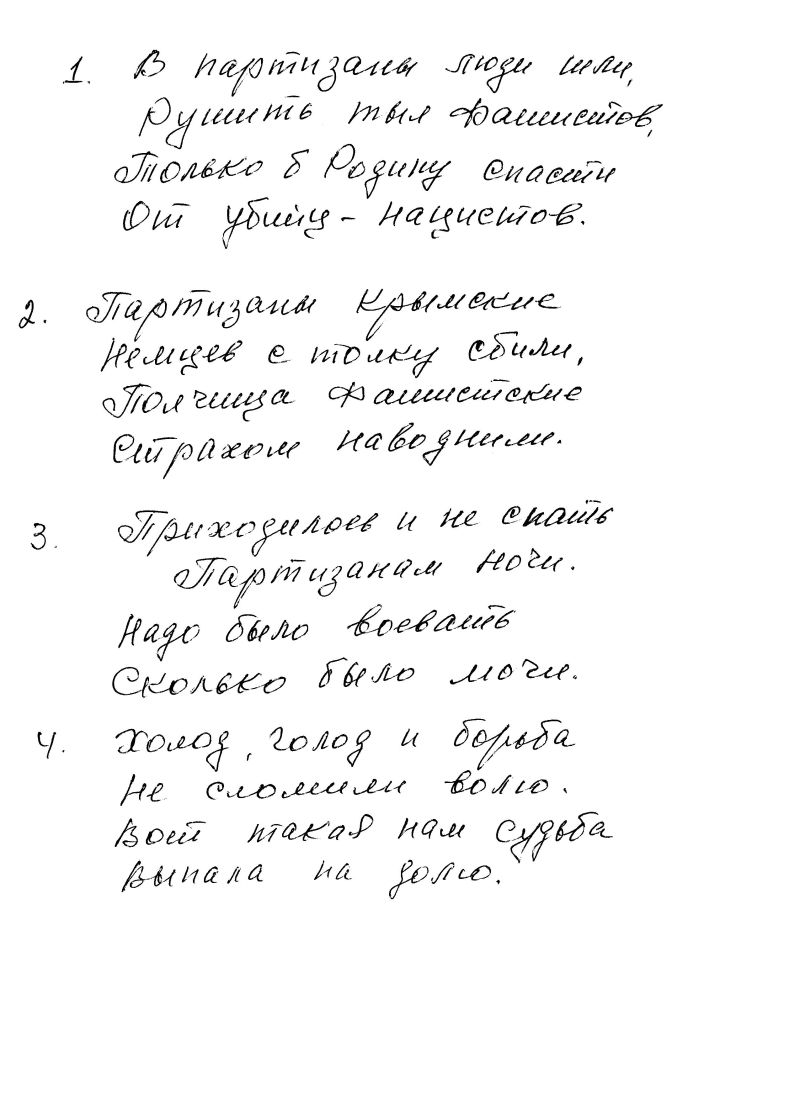 1. В партизаны люди шли,
Рушить тыл фашистов,
Только б Родину спасти
От убийц - нацистов.
2. Партизаны крымские
Немцев с толку сбили,
Полчища фашистские
Страхом наводнили.
3. Приходилось и не спать
Партизанам ночи.
Надо было воевать
Сколько было мочи.
4. Холод, голод и борьба
Не сломили волю.
Вот такая нам судьба
Выпала на долю.